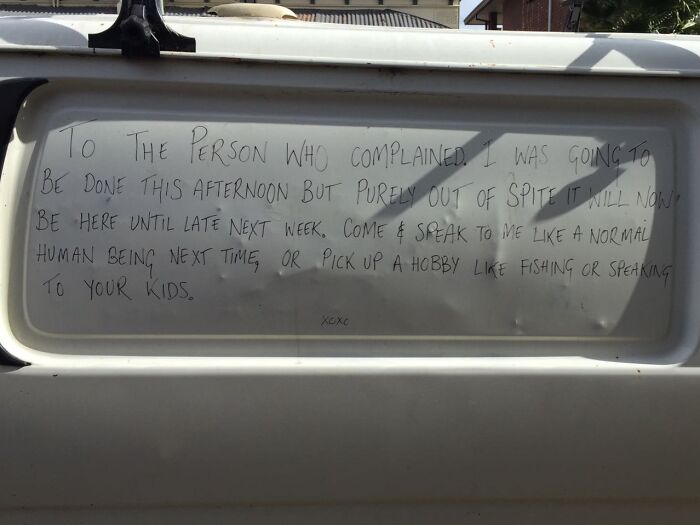 TO THE PERSON WHO COMPLAINED. I WAS GOING TO
BE DONE THIS AFTERNOON BUT PURELY OUT OF SPITE IT WILL NOW
BE HERE UNTIL LATE NEXT WEEK. COME & SPEAK TO ME LIKE A NORMAL
HUMAN BEING NEXT TIME, OR PICK UP A HOBBY LIKE FISHING OR SPEAKING
TO YOUR KIDS.
XOXO